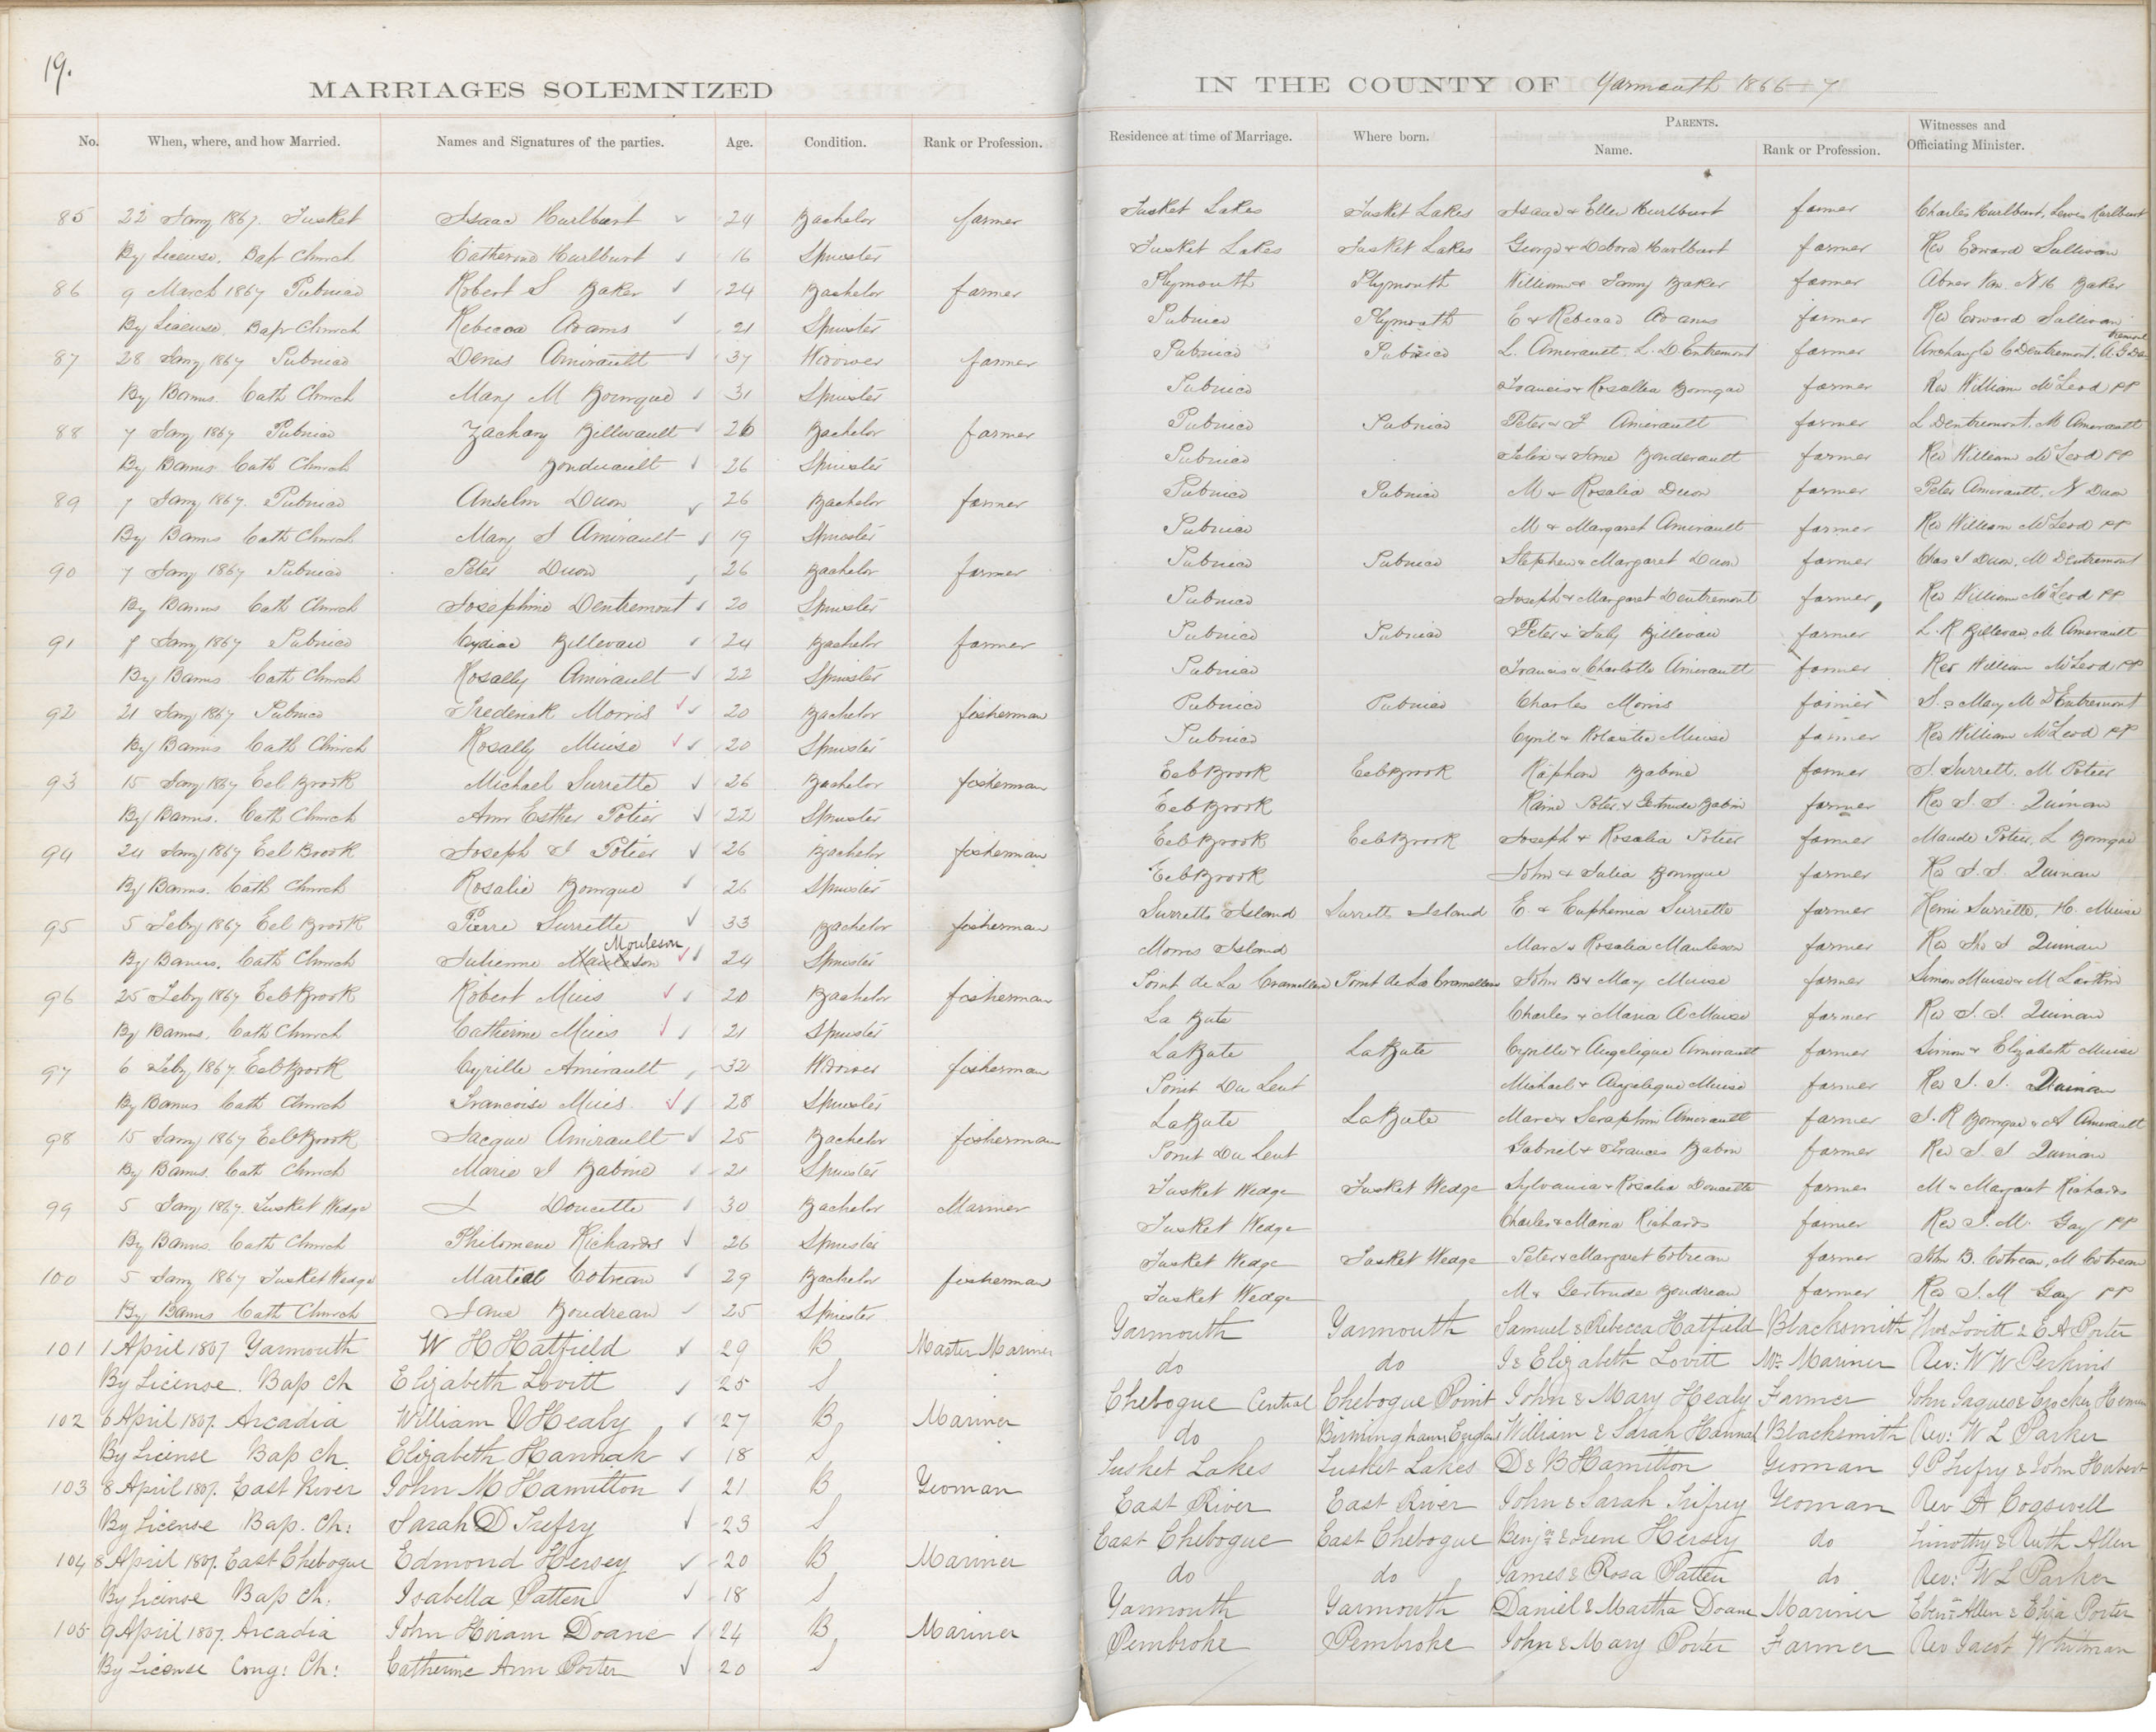 19.
MARRIAGES SOLEMNIZED IN THE COUNTY OF Yarmouth 1866-7
No. When, where, and how Married. Names and Signatures of the parties. Age. Condition. Rank or Profession. Residence at time of Marriage. Where born. PARENTS. Name. Rank or Profession. Witnesses and Officiating Minister.
85 22 Jany 1867. Tusket Isaac Hurlburt 24 Bachelor farmer Tusket Lakes Tusket Lakes Isaac & Ellen Hurlburt farmer Charles Hurlburt, Lewis Hurlburt
By License. Bap Church Catherine Hurlburt 16 Spinster Tusket Lakes Tusket Lakes George & Debora Hurlburt farmer Rev Edward Sullivan
86 9 March 1867 Pubnico Robert S Baker 24 Bachelor farmer Plymouth Plymouth William & Fanny Baker farmer Abner Baker
By License. Bap Church Rebecca Adams 21 Spinster Pubnico Plymouth E & Rebecca Adams farmer Rev Edward Sullivan
87 28 Jany 1867 Pubnico Denis Amirault 37 Widower farmer Pubnico Pubnico L. Amirault, L. D'Entremont farmer Archangle C Dentremont, A. G De-tremont
By Banns. Cath Church Mary M Bourque 31 Spinster Pubnico Francis & Rosallia Bourque farmer Rev William McLeod PP
88 7 Jany 1867 Pubnico Zachary Billivault 26 Bachelor farmer Pubnico Pubnico Peter & F Amirault farmer L Dentremont, M Amerault
By Banns. Cath Church Bonduault 26 Spinster Pubnico Felix & Jane Bonderault farmer Rev William McLeod PP
89 7 Jany 1867. Pubnico Anselm Duon 26 Bachelor farmer Pubnico Pubnico M & Rosalia Duon farmer Peter Amirault, N Duon
By Banns Cath Church Mary S Amirault 19 Spinster Pubnico M & Margaret Amirault farmer Rev William McLeod PP
90 7 Jany 1867 Pubnico Peter Duon 26 Bachelor farmer Pubnico Pubnico Stephen & Margaret Duon farmer Chas S Duon, M Dentremont
By Banns Cath Church Josephine Dentremont 20 Spinster Pubnico Joseph & Margaret Dentremont farmer, Rev William McLeod PP
91 7 Jany 1867 Pubnico Cydiac Billevau 24 Bachelor farmer Pubnico Pubnico Peter & July Billevau farmer L. R Billevau, M Amerault
By Banns Cath Church Rosally Amirault 22 Spinster Pubnico Francis & Charlotte Amirault farmer Rev William McLeod PP
92 21 Jany 1867 Pubnico Frederick Morris 20 Bachelor fisherman Pubnico Pubnico Charles Morris farmer S. & Mary M D'Entremont
By Banns Cath Church Rosally Muise 20 Spinster Pubnico Cyril & Kolastie Muise farmer Rev William McLeod PP
93 15 Jany 1867 Eel Brook Michael Surrette 26 Bachelor fisherman Eel Brook Eel Brook Raphon Babine farmer J. Surrett. M Potier
By Banns. Cath Church Ann Esther Potier 22 Spinster Eel Brook Raine Potier & Gertrude Babin farmer Rev J. J. Quinan
94 24 Jany 1867 Eel Brook Joseph S Potier 26 Bachelor fisherman Eel Brook Eel Brook Joseph & Rosalia Potier farmer Maude Potier, L Bourque
By Banns. Cath Church Rosalie Bourque 26 Spinster Eel Brook John & Julia Bourque farmer Rev J. J. Quinan
95 5 Feby 1867 Eel Brook Pierre Surrette 33 Bachelor fisherman Surretts Island Surretts Island E. & Euphemia Surrette farmer Henri Surrette, H. Muise
By Banns. Cath Church Julienne Mouleson 24 Spinster Morris Island Marc & Rosalia Mauleson farmer Rev Jho J Quinan
96 25 Feby 1867 Eel Brook Robert Muis 20 Bachelor fisherman Point de La Point de La John B & Mary Muise farmer Simon Muise & M Larkin
By Banns. Cath Church Catherine Muis 21 Spinster La Bute Charles & Maria A Muise farmer Rev J. J. Quinan
97 6 Feby 1867 Eel Brook Cyrille Amirault 32 Widower fisherman La Bute La Bute Cyrille & Angelique Amirault farmer Simon & Elizabeth Muise
By Banns Cath Church Francoise Muis 28 Spinster Point Du Leut Michael & Angelique Muise farmer Rev J. J. Quinan
98 15 Jany 1867 Eel Brook Jacque Amirault 25 Bachelor fisherman La Bute La Bute Marc & Seraphin Amirault farmer J. R Bourque & A Amirault
By Banns. Cath Church Marie S Babine 21 Spinster Point Du Leut Gabriel & Frances Babin farmer Rev J J Quinan
99 5 Jany 1867. Tusket Wedge J Doucette 30 Bachelor Mariner Tusket Wedge Tusket Wedge Sylvania & Rosalia Doucette farmer M & Margaret Richards
By Banns. Cath Church Philomene Richards 26 Spinster Tusket Wedge Charles & Maria Richards farmer Rev J. M. Gay PP
100 5 Jany 1867 Tusket Wedge Martial Cotreau 29 Bachelor fisherman Tusket Wedge Tusket Wedge Peter & Margaret Cotreau farmer John B. Cotreau, M Cotreau
By Banns Cath Church Jane Boudreau 25 Spinster Tusket Wedge M & Gertrude Boudreau farmer Rev J. M Gay PP
101 1 April 1867 Yarmouth W H Hatfield 29 B Master Mariner Yarmouth Yarmouth Samuel & Rebecca Hatfield Blacksmith Lovitt & E A Porter
By License. Bap Ch Elizabeth Lovitt 25 S do do J & Elizabeth Lovitt Mr. Mariner Rev: W W Perkins
102 6 April 1867. Arcadia William V Healy 27 B Mariner Chebogue Central Chebogue Point John & Mary Healy Farmer John Jaques & Crocker
By License Bap Ch. Elizabeth Hannah 18 S do Birmingham England William & Sarah Hannah Blacksmith Rev: W L Parker
103 8 April 1867. East River John M Hamilton 21 B Yeoman Tusket Lakes Tusket Lakes D & B Hamilton Yeoman J P Trefry & John Hurlbert
By License Bap. Ch: Sarah D Trefry 23 S East River East River John & Sarah Trefry Yeoman Rev A Cogswell
104 8 April 1867. East Chebogue Edmond Hersey 20 B Mariner East Chebogue East Chebogue Benjn & Irene Hersey do Timothy & Ruth Allen
By License Bap Ch: Isabella Patten 18 S do do James & Rosa Patten do Rev: W L Parker
105 9 April 1867. Arcadia John Hiram Doane 24 B Mariner Yarmouth Yarmouth Daniel & Martha Doane Mariner Ebenr Allen & Eliza Porter
By License Cong: Ch: Catherine Ann Porter 20 S Pembroke Pembroke John & Mary Porter Farmer Rev Jacob Whitman